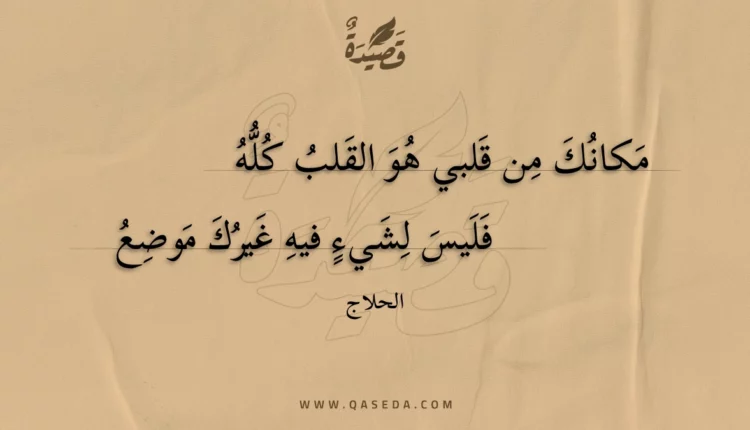 قَصِيْدَةٌ
مَكانُكَ مِن قَلبي هُوَ القَلبُ كُلُّهُ
فَلَيسَ لِشَيءٍ فيهِ غَيرُكَ مَوضِعُ
الحلاج
WWW.QASEDA.COM